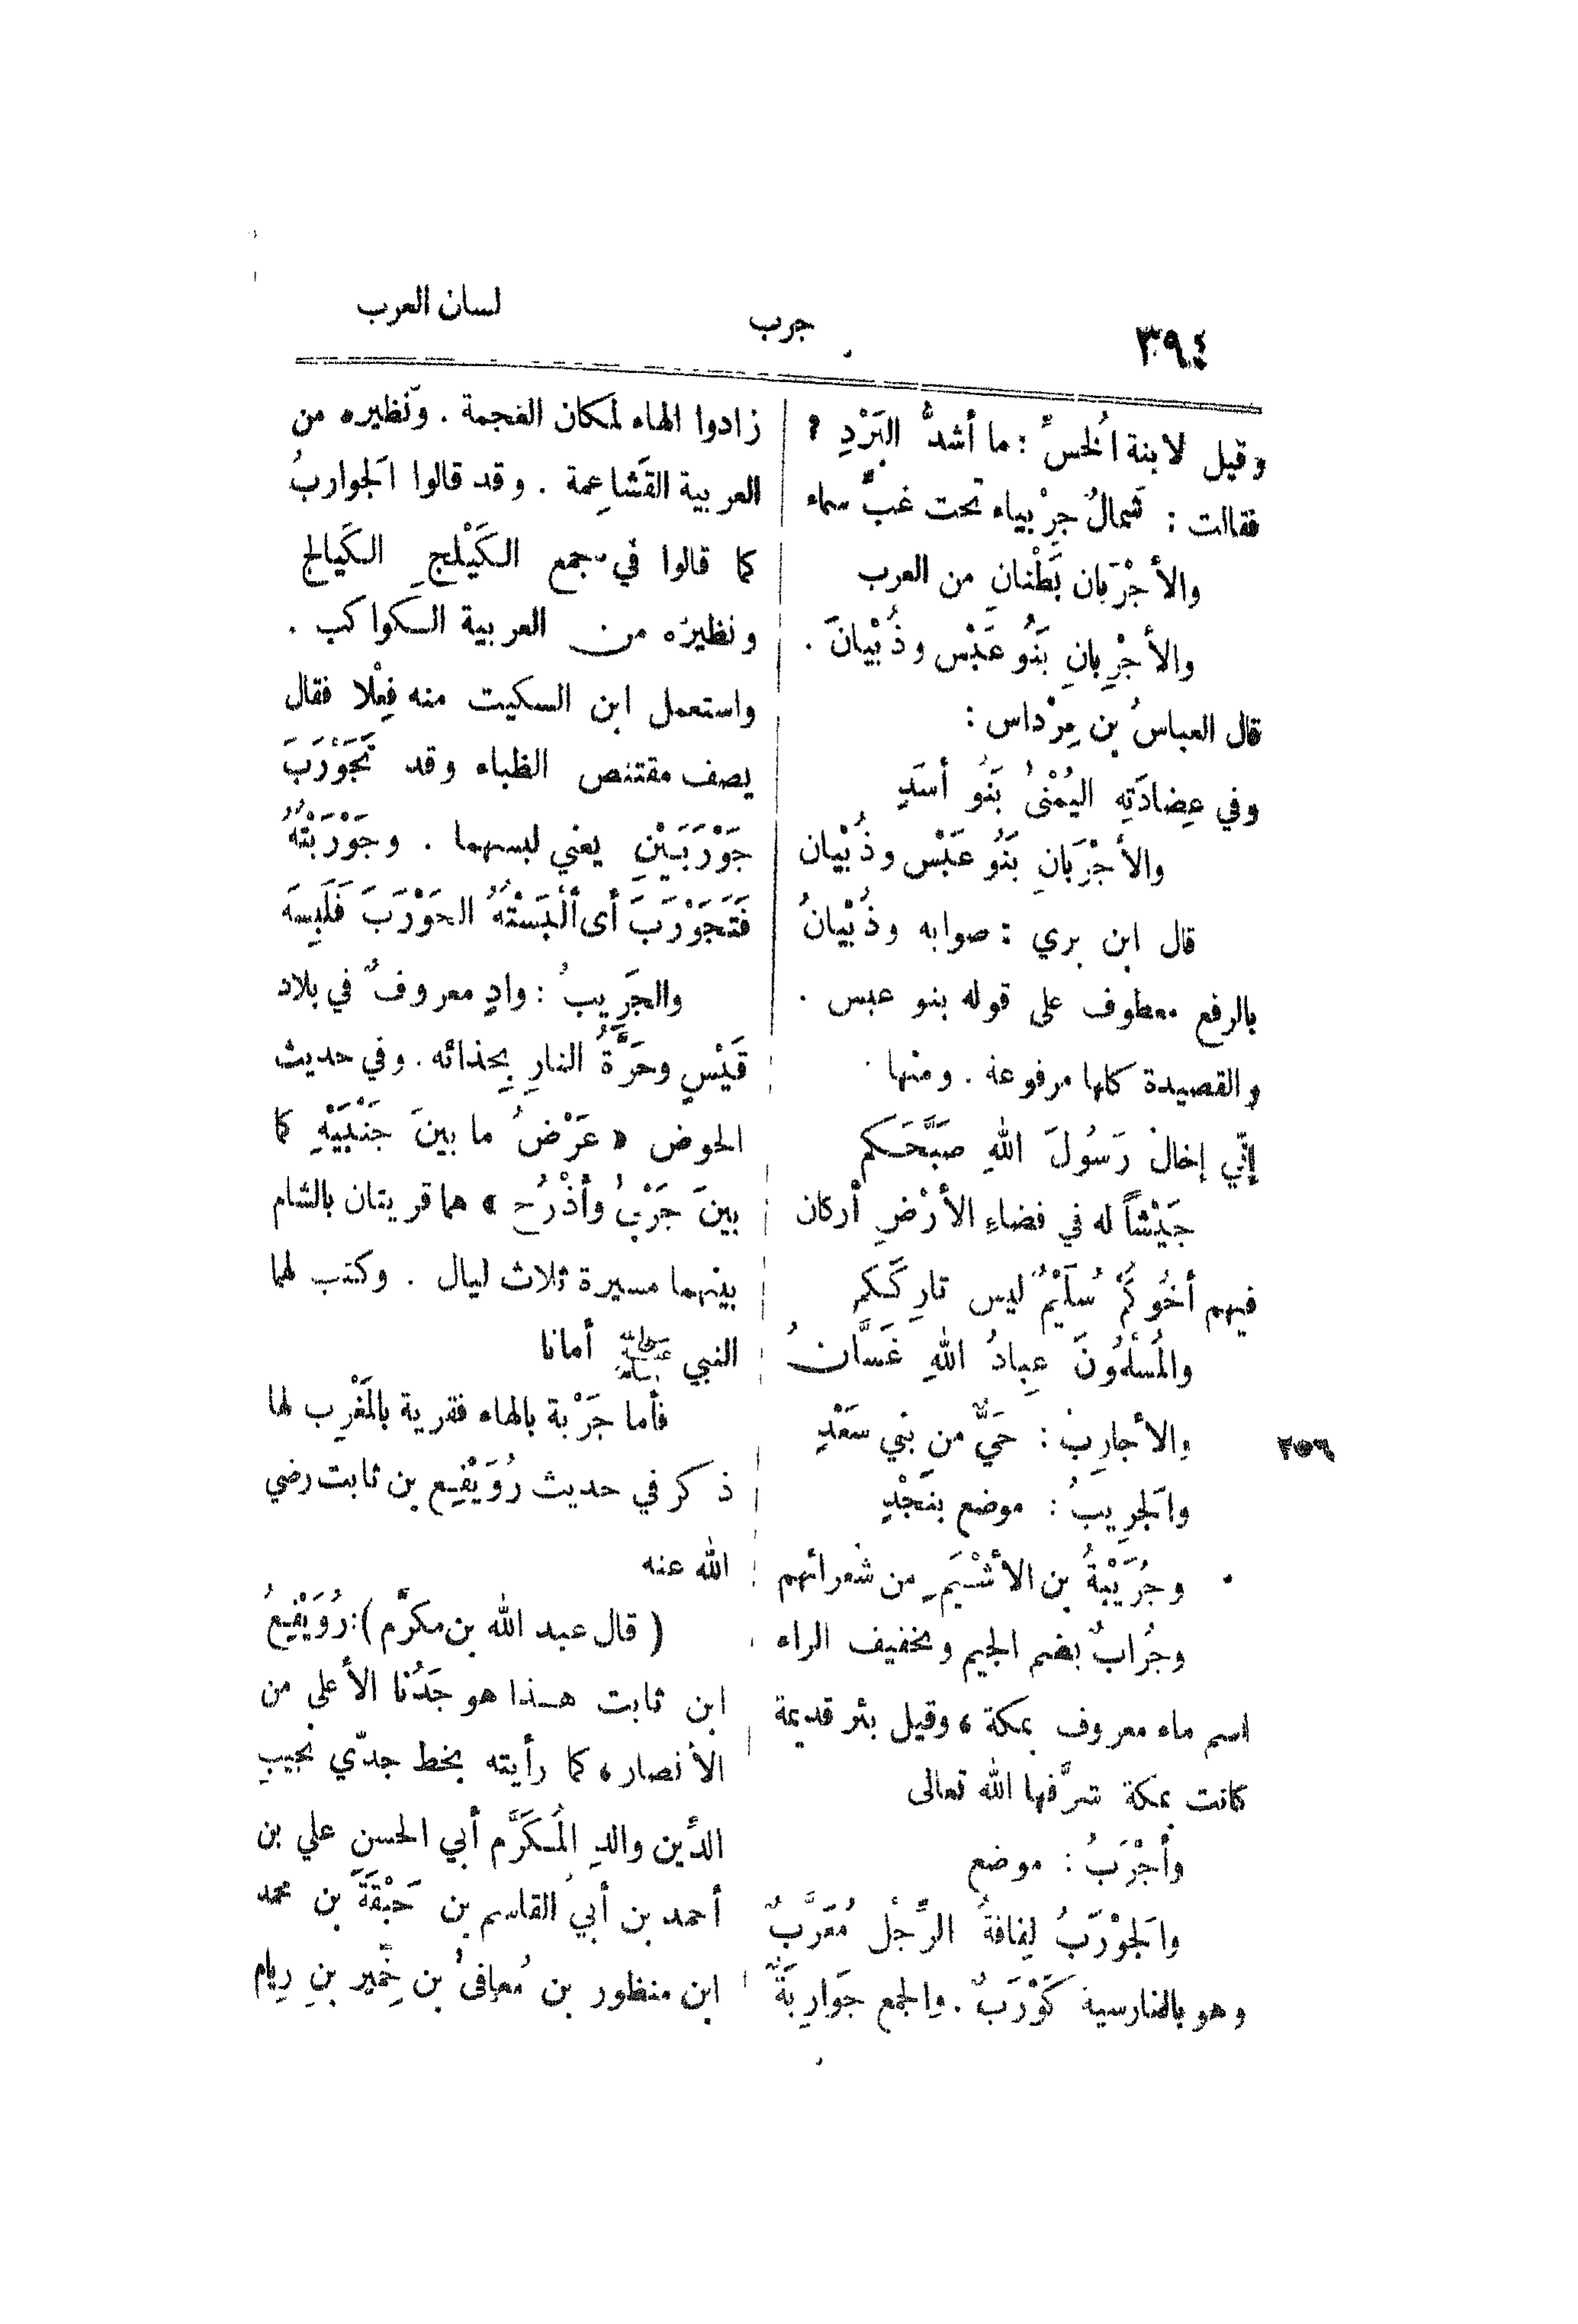 ٣٩٤
جرب
لسان العرب
وقيل لابنة الخُسِّ : ما أشدُّ البَرْدِ ؟
فقالت : شَمالٌ جِرْبياء تحت غبِّ سماء
والأجْرَبان بَطْنانِ من العرب
والأجْرِبانِ بَنُو عَبْس وذُبْيانَ .
قال العباسُ بن مِرْداس :
وفي عِضادَتِهِ اليُمْنىٰ بَنُو أسَدٍ
والأجْرَبانِ بَنُو عَبْس وذُبْيان
قال ابن بري : صوابه وذُبْيانُ
بالرفع معطوف على قوله بنو عبس .
والقصيدة كلها مرفوعة . ومنها
إنّي إخالُ رَسُولَ اللهِ صَبَّحَكم
جَيْشاً له في فضاءِ الأرْضِ أركان
فيهم أخُوكُمْ سُلَيْمٌ ليس تارِكَكم
والمُسلمُونَ عِبادُ اللهِ غَسَّانُ
والأجارِبُ : حَيٌّ من بني سَعْدٍ
٢٥٦
والجَرِيبُ : موضع بنَجْدٍ
وجُرَيْبةُ بن الأشْيَمِ من شُعرائهم
وجُرابٌ بضم الجيم وتخفيف الراء
اسم ماء معروف بمكة ، وقيل بئر قديمة
كانت بمكة شرَّفها الله تعالى
وأجْرَبُ : موضع
والجَوْرَبُ لِفافةُ الرِّجْل مُعَرَّبٌ
وهو بالفارسية كَوْرَبٌ . والجمع جَوارِبَةٌ
زادوا الهاء لمكان العجمة . ونظيره من
العربية القَشاعِمة . وقد قالوا الجَواربُ
كما قالوا في جمع الكَيْلجِ الكَيالج
ونظيره من العربية الكواكب .
واستعمل ابن السكيت منه فِعْلا فقال
يصف مقتنص الظباء وقد تَجَوْرَبَ
جَوْرَبَيْنِ يعني لبسهما . وجَوْرَبْتُهُ
فَتَجَوْرَبَ أى ألْبَسْتُهُ الجَوْرَبَ فَلَبِسَه
والجَرِيبُ : وادٍ معروفٌ في بلاد
قَيْسٍ وحَرَّةُ النارِ بِحذائه . وفي حديث
الحوض « عَرْضُ ما بينَ جَنْبَيْهِ كما
بينَ جَرْبىٰ وأذْرُح » هما قريتان بالشام
بينهما مسيرة ثلاث ليال . وكتب لهما
النبي ﷺ أمانا
فأما جَرْبة بالهاء فقرية بالمَغْرِب لها
ذكر في حديث رُوَيْفِيع بن ثابت رضي
الله عنه
( قال عبد الله بن مكرَّم ) : رُوَيْفِيعُ
ابن ثابت هـذا هو جَدُّنا الأعلى من
الأنصار ، كما رأيته بخط جدّي نجيبِ
الدِّين والدِ المُكَرَّم أبي الحسن علي بن
أحمد بن أبي القاسم بن حَبْقَةَ بن محمد
ابن منظور بن مُعافىٰ بن خِمِّير بنِ رِيام